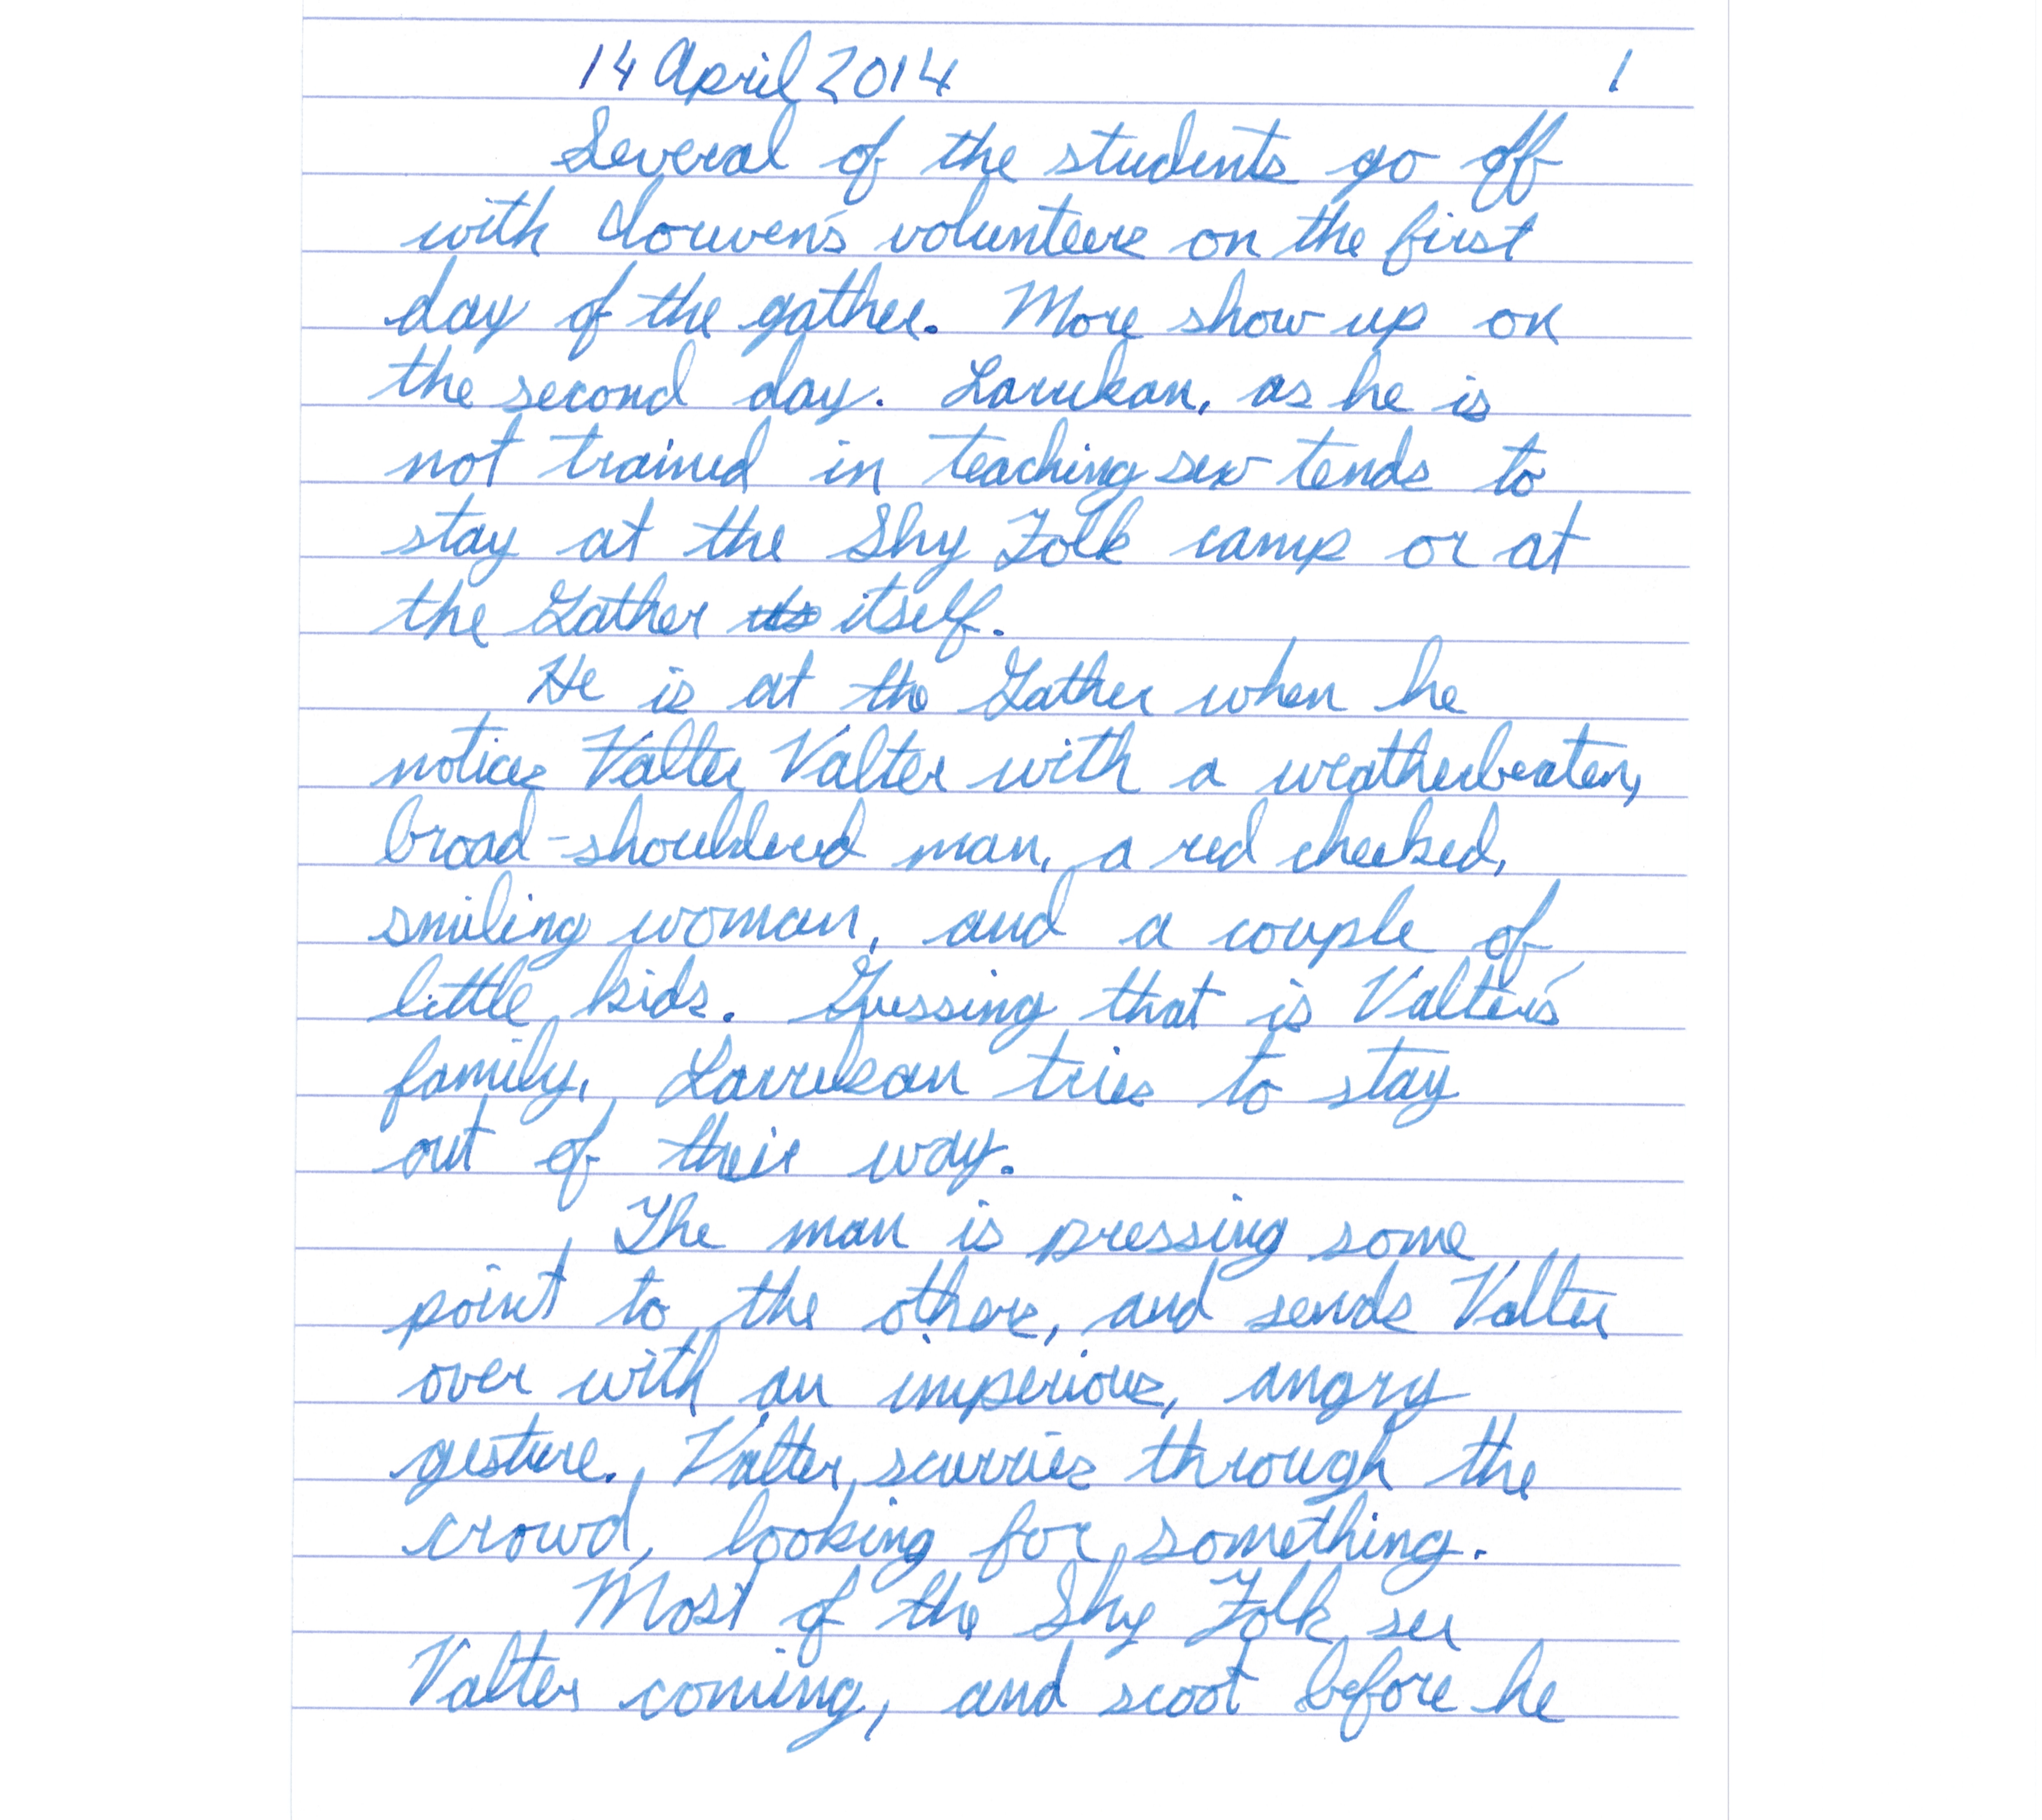 14 April 2014 1
Several of the students go off
with Clouven's volunteers on the first
day of the gather. More show up on
the second day. Larrekan, as he is
not trained in teaching sex tends to
stay at the Shy Folk camp or at
the Gather its itself.
He is at the Gather when he
notices Valter Valter with a weatherbeaten,
broad-shouldered man, a red cheeked,
smiling woman, and a couple of
little kids. Guessing that is Valter's
family, Larrekan tries to stay
out of their way.
The man is pressing some
point to the others, and sends Valter
over with an imperious, angry
gesture. Valter scurries through the
crowd, looking for something.
Most of the Shy Folk see
Valter coming, and scoot before he